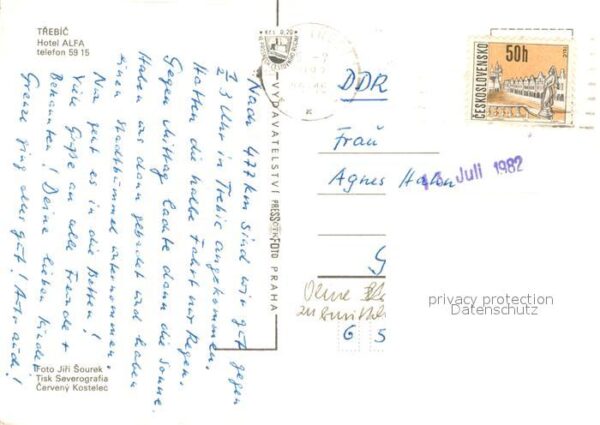 TŘEBÍČ
Hotel ALFA
telefon 59 15
Nach 477 km sind wir gut gegen
½ 3 Uhr in Třebíč angekommen.
Hatten die halbe Fahrt nur Regen.
Gegen Mittag lachte dann die Sonne.
Haben was dann gebadet und haben
einen Stadtbummel unternommen.
Nun geht es in die Betten!
Viele Grüße an alle Freunde +
Bekannten! Deine lieben Kinder
Grenze ging alles gut! Auto auch!
Foto Jiří Šourek
Tisk Severografia
Červený Kostelec
Kčs 0,70
VYDAVATELSTVÍ PRESSFOTO PRAHA
ČESKOSLOVENSKO
50h
DDR
Frau
Agnes
Juli 1982
G
Ohne
zu
6 5
privacy protection
Datenschutz